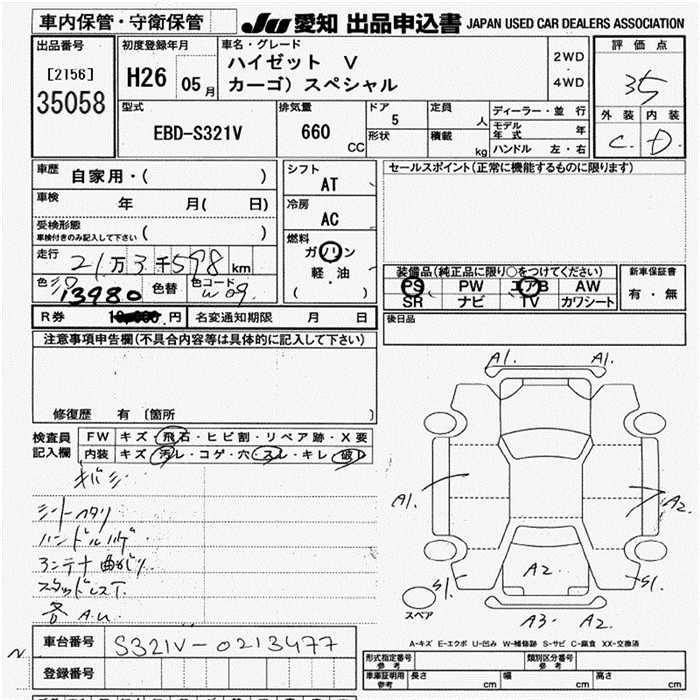 車内保管・守衛保管
JU 愛知 出品申込書 JAPAN USED CAR DEALERS ASSOCIATION
出品番号
[2156]
35058
初度登録年月
H26 05月
車名・グレード
ハイゼット V
カーゴ) スペシャル
2WD
・
4WD
評価点
35
外装 内装
C. D.
型式
EBD-S321V
排気量
660 CC
ドア
5
形状
定員 人
積載 kg
ディーラー・並行
モデル年式 年
ハンドル 左・右
車歴 自家用・( )
車検 年 月( 日)
受検形態
車検付きのみ記入して下さい ( )
走行 21万3千598km
色 シロ 色替 色コード W09.
13980
R券 10,000円 名変通知期限 月 日
シフト
AT
冷房
AC
燃料
ガソリン
軽・油
( )
セールスポイント(正常に機能するものに限ります)
装備品(純正品に限り○をつけてください)
PS PW エアB AW
SR ナビ TV カワシート
新車保証書
有・無
後日品
注意事項申告欄(不具合内容等は具体的に記入して下さい)
修復歴 有 〔箇所 〕
検査員
記入欄
FW キズ・飛石・ヒビ割・リペア跡・X要
内装 キズ・汚レ・コゲ・穴・スレ・キレ・破レ
シートヘタリ
ハンドルハゲ
アンテナ曲がり
スタッドレス T.
各 A.U.
A1. A1.
A1. A2.
A2.
S1. S1.
A3. A2.
スペア
A-キズ E-エクボ U-凹み W-補修跡 S-サビ C-腐食 XX-交換済
車台番号 S321V-0213477
登録番号
形式指定番号 参考 類別区分番号 参考
車庫証明用 参考 長さ cm 幅 cm 高さ cm